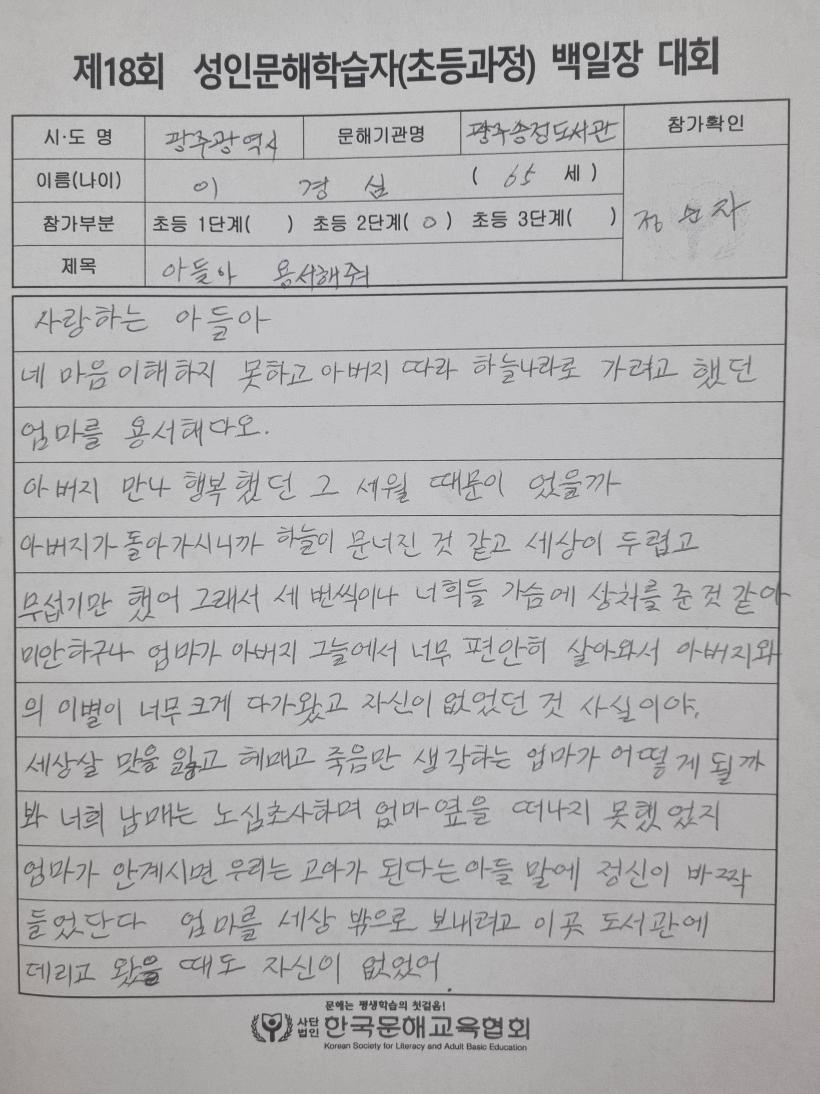 제18회 성인문해학습자(초등과정) 백일장 대회
시·도 명 광주광역시 문해기관명 광주송정도서관 참가확인
이름(나이) 이 경 심 ( 65 세 )
참가부분 초등 1단계( ) 초등 2단계( O ) 초등 3단계( ) 정 순 자
제목 아들아 용서해줘
사랑하는 아들아
네 마음 이해하지 못하고 아버지 따라 하늘나라로 가려고 했던
엄마를 용서해다오.
아버지 만나 행복했던 그 세월 때문이 었을까
아버지가 돌아가시니까 하늘이 문너진 것 같고 세상이 두렵고
무섭기만 했어 그래서 세 번씩이나 너희들 가슴에 상처를 준 것 같아
미안하구나 엄마가 아버지 그늘에서 너무 편안히 살아와서 아버지와
의 이별이 너무 크게 다가왔고 자신이 없었던 것 사실이야.
세상살 맛을 잃고 헤매고 죽음만 생각하는 엄마가 어떻게 될까
봐 너희 남매는 노심초사하며 엄마 옆을 떠나지 못했었지
엄마가 안계시면 우리는 고아가 된다는 아들 말에 정신이 바짝
들었단다 엄마를 세상 밖으로 보내려고 이곳 도서관에
데리고 왔을 때도 자신이 없었어.
문해는 평생학습의 첫걸음!
사단법인 한국문해교육협회
Korean Society for Literacy and Adult Basic Education